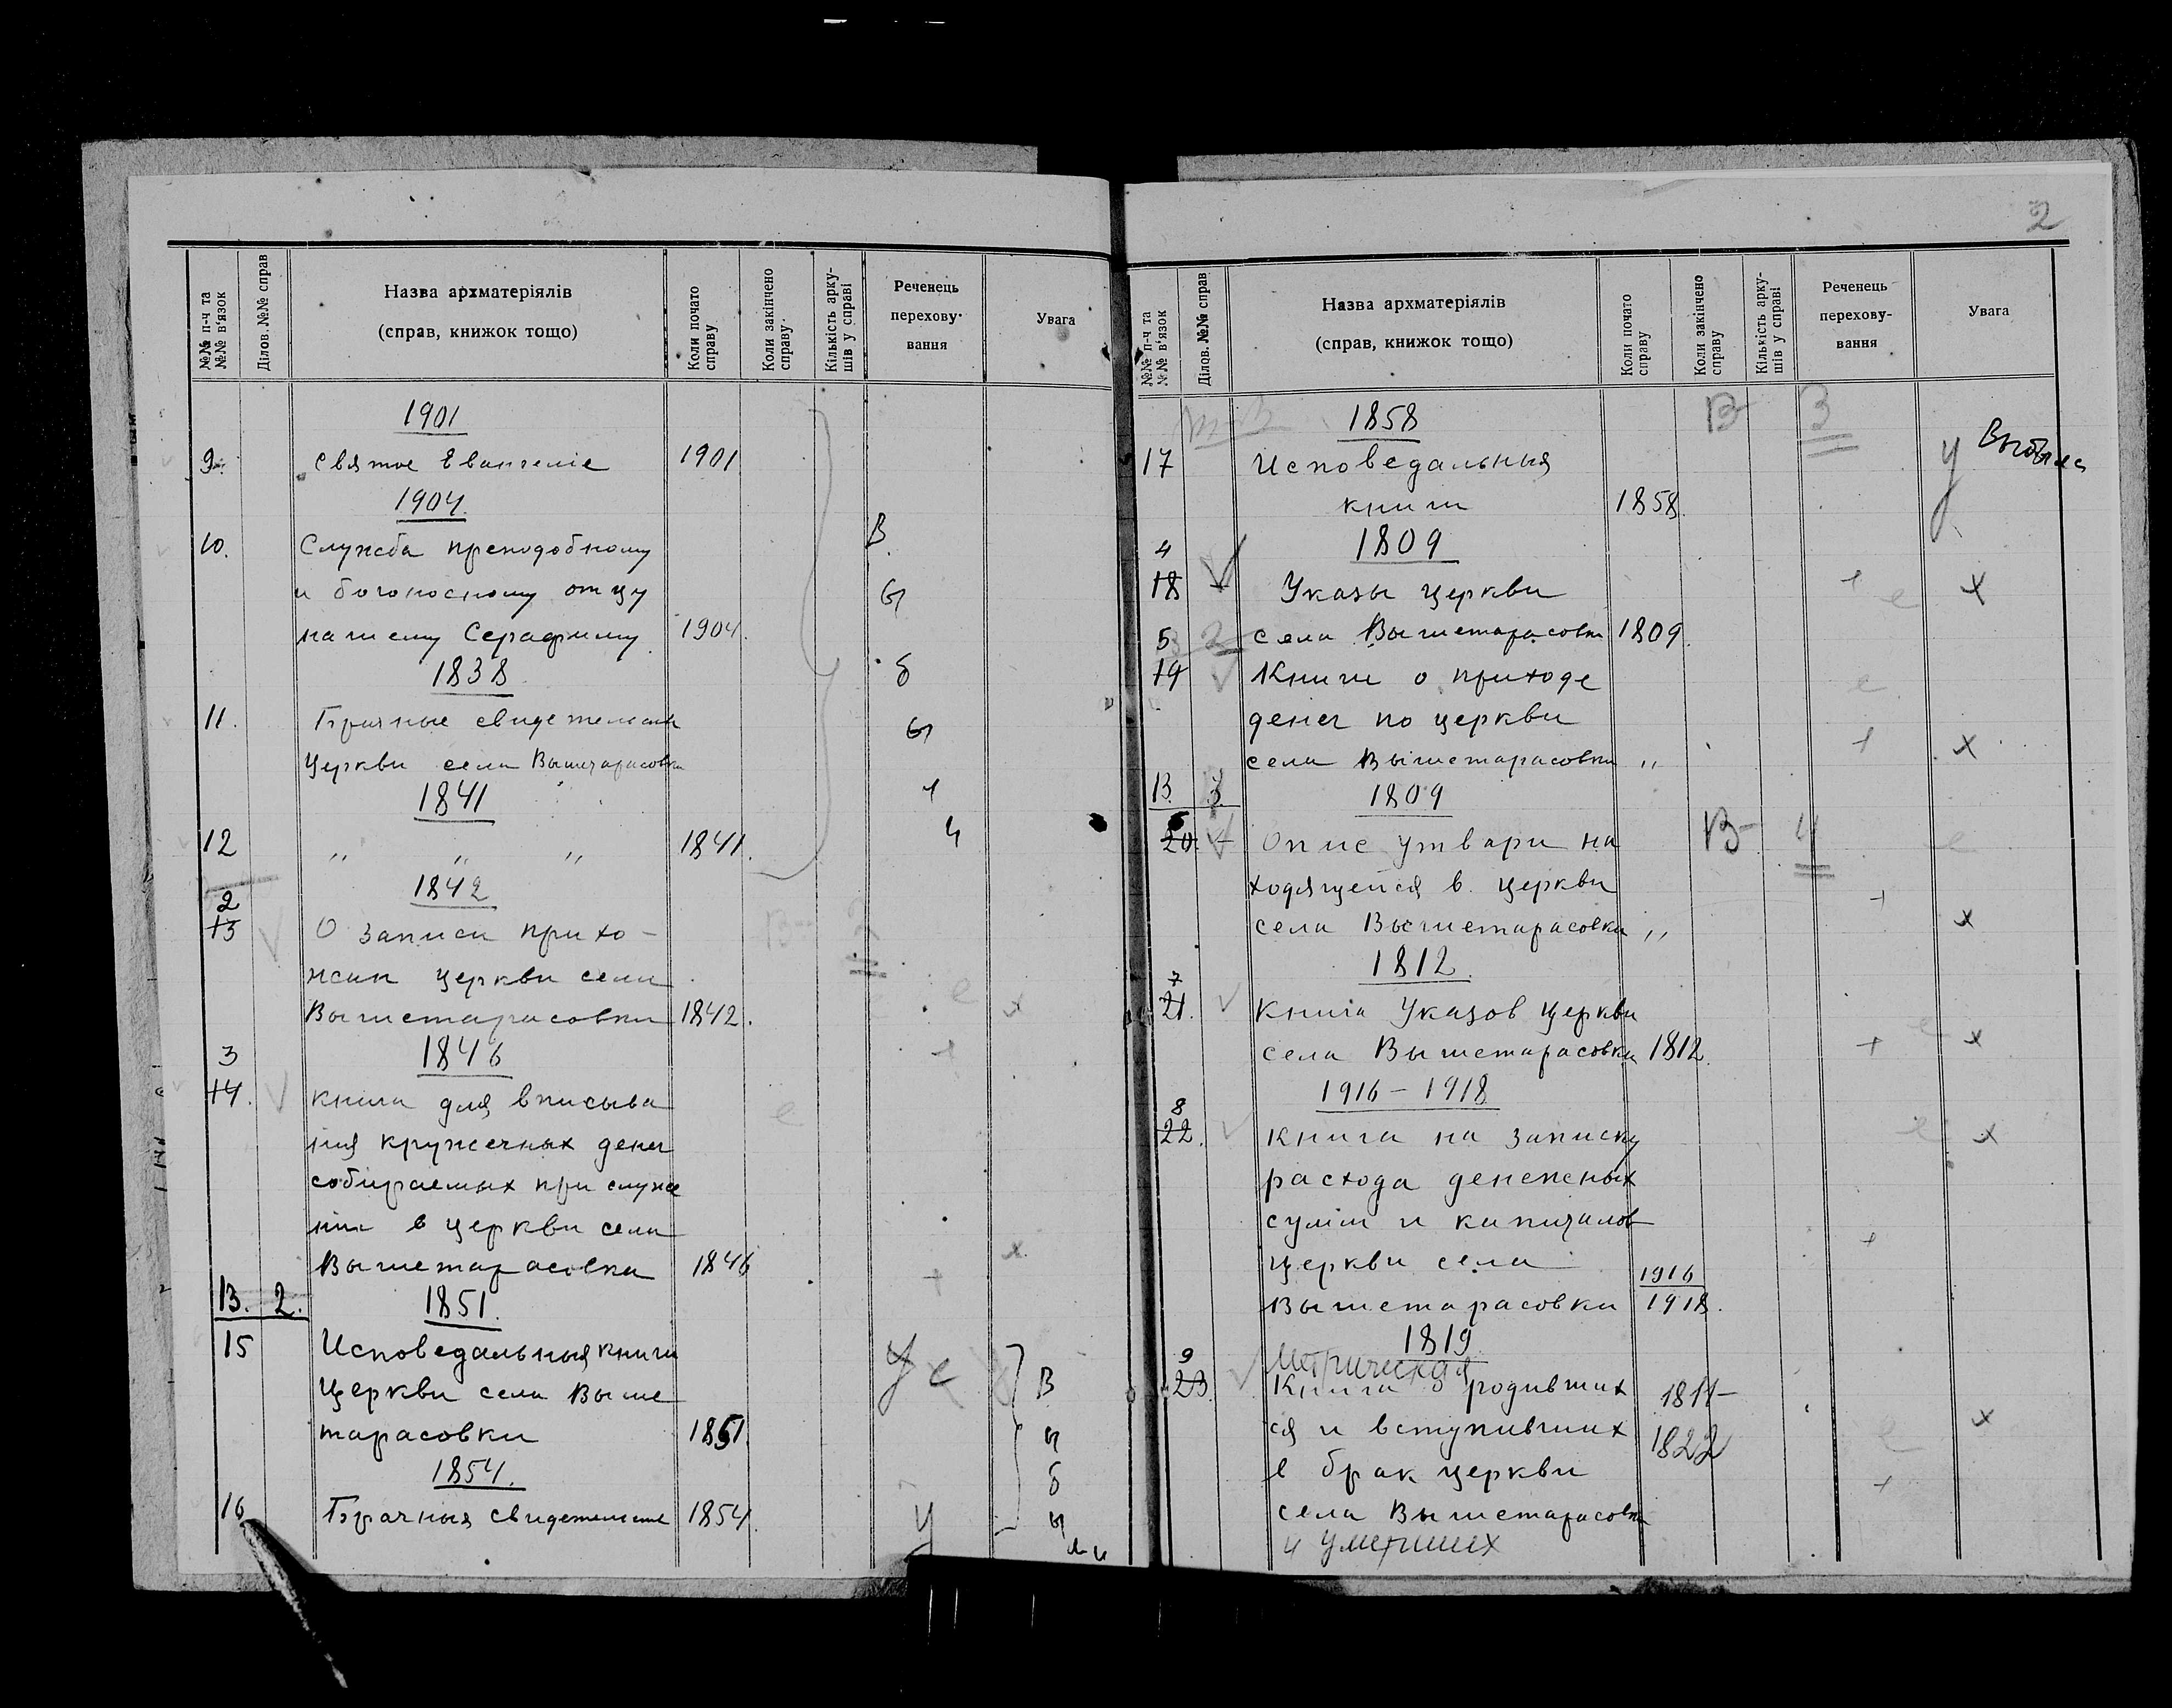 №№ п-ч та №№ в'язок
Ділов. №№ справ
Назва архматеріялів
(справ, книжок тощо)
Коли почато справу
Коли закінчено справу
Кількість арку-
шів у справі
Реченець
перехову-
вання
Увага
1901
9. Святое Евангелие 1901
1904.
10. Служба преподобному
и богоносному отцу
нашему Серафиму 1904.
1838
11. Брачные свидетельства
Церкви села Вышетарасовки
1841
12 " " " 1841.
В
ы
б
ы
л
и
1842
2
13 О записи прихо-
жан церкви села
Вышетарасовки 1842.
В 2
е х
3
1846
14. книга для вписыва
ния кружечных денег
собираемых при служе
нии в церкви села
Вышетарасовки 1846
В. 2.
1851.
15 Исповедальныя книги
Церкви села Выше
тарасовки 1851.
1854.
16 Брачныя свидетельства 1854.
В
ы
б
ы
ли
2
№№ п-ч та №№ в'язок
Ділов. №№ справ
Назва архматеріялів
(справ, книжок тощо)
Коли почато справу
Коли закінчено справу
Кількість арку-
шів у справі
Реченець
перехову-
вання
Увага
1858 В 3
17 Исповедальныя
книги 1858. У
1809
4
18 Указы церкви + е х
села Вышетарасовки 1809.
5
19 Книги о приходе
денег по церкви
села Вышетарасовки " + х
В. 3.
1809
6
20. Опис утвари на В 4
ходящейся в церкви
села Вышетарасовки " + х
1812.
7
21. Книга Указов Церкви
села Вышетарасовки 1812. + е х
1916 - 1918
8
22. книга на записку е х
расхода денежных
сумм и капиталов
церкви села
Вышетарасовки 1916
1918.
1819
9
Метрическая
23. Книга родивших 1811-
ся и вступивших 1822
в брак церкви
села Вышетарасовки
и умерших